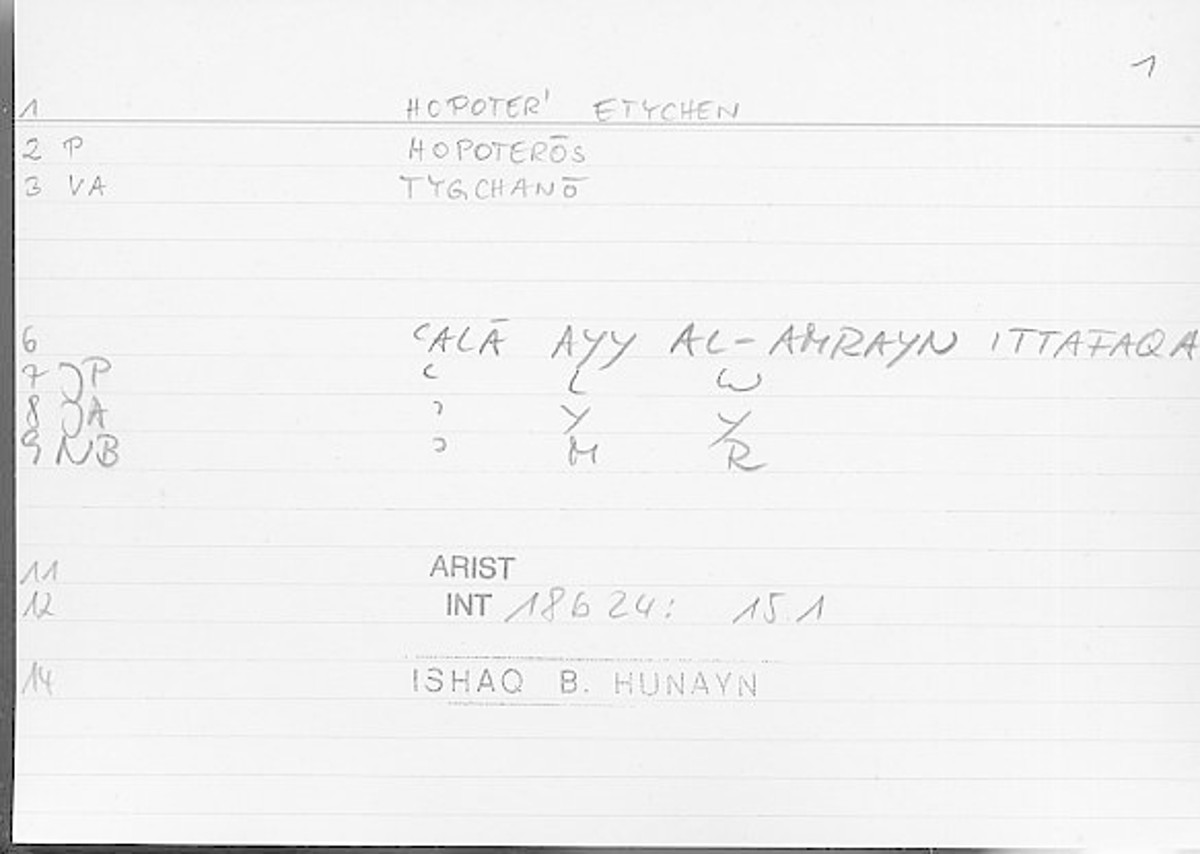 1
1 HOPOTER' ETYCHEN
2 P HOPOTERŌS
3 VA TYGCHANŌ
6 ʿALĀ AYY AL-AMRAYN ITTAFAQA
7 JP ʿ L W
8 JA ʾ Y Y
9 NB ʾ M R
11 ARIST
12 INT 18624: 15.1
14 ISHAQ B. HUNAYN